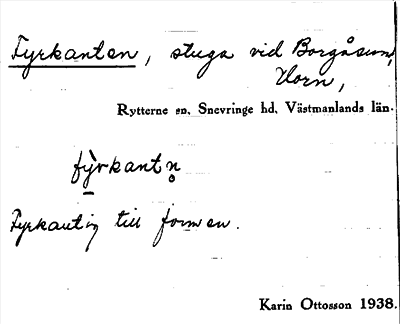 Fyrkanten, stuga vid Borgåsund,
Horn,
Rytterne sn, Snevringe hd, Västmanlands län.
fỳrkantn̥
Fyrkantig till formen.
Karin Ottosson 1938.